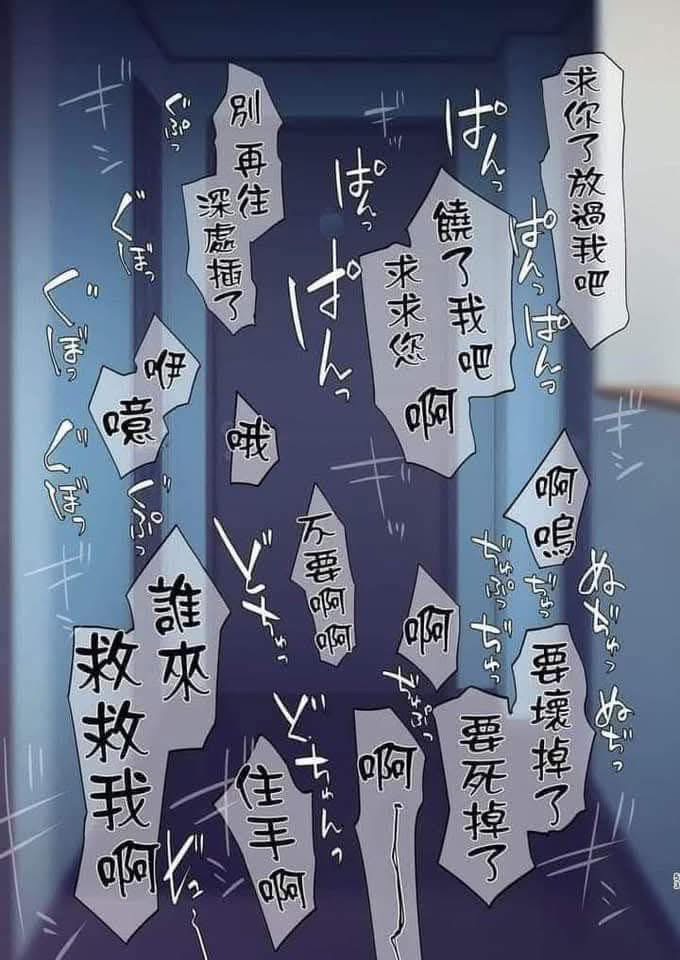 求你了放過我吧
饒了我吧
求求您
啊
別再往
深處插了
咿
噫
哦
啊嗚
不要啊啊
啊
要壞掉了
要死掉了
誰來
救救我啊
住手啊
啊
ぱんっ
ぱんっ
ぱんっ
ぱんっ
ぱんっ
ぐぷっ
ぐぼっ
ぐぼっ
ぐぼっ
ぐぷっ
どちゅっ
どちゅんっ
ぢゅぷっ
ぢゅっ
ぢゅっ
ぢゅぷっ
ぬぢゅっ
ぬぢっ
53